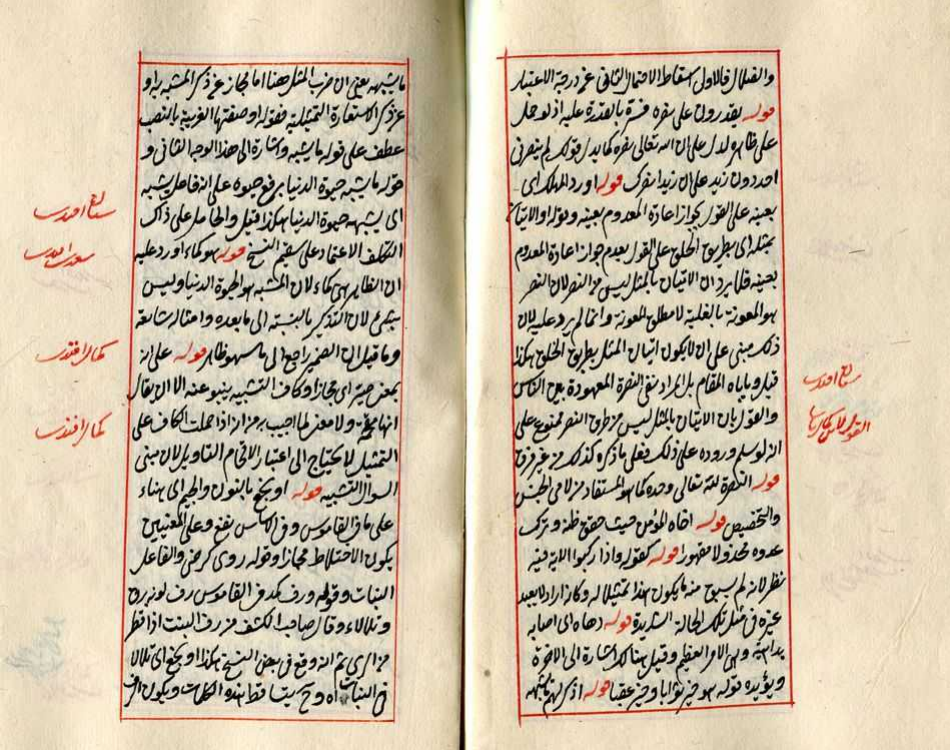 والضلال فالاول اسقاط الاحتمال الثانى عن درجة الاعتبار
قوله يقدرون على نصره فسره بالقدرة عليه اذ لو حمل
على ظاهره لدل على ان الله تعالى نصره كما يدل قولك لم ينصرنى
احد دون زيد على ان زيدا نصرك قوله او رد المهلك اى
بعينه على القول بجواز اعادة المعدوم بعينه وقوله او الاتيان
بمثله اى بطريق الخلق على القول بعدم جواز اعادة المعدوم
بعينه فلا يرد ان الاتيان بالمثل ليس من النصر لان النصر
هو المعونة بالغلبة لا مطلق المعونة وانما لم يرد عليه لان
ذلك مبنى على ان لا يكون اتيان المثل بطريق الخلق هكذا
قيل وياباه المقام بل المراد نفى النصرة المعهودة بين الناس
والقول بان الاتيان بالمثل ليس من طرق النصر ممنوع على
انه لو سلم وروده على ذلك فعلى ما ذكره كذلك من غير فرق
قوله النصرة لله تعالى وحده كما هو المستفاد من لامى الجنس
والتخصيص قوله اخاه المؤمن حيث حقق ظنه وترك
عدوه مخذولا مقهورا قوله كقوله واذا ركبوا الاية فيه
نظر لانه لم يسبق منه ما يكون هذا تمثيلا له وكانه اراد لا يعبد
غيره فى مثل تلك الحالة الشديدة قوله دهاه اى اصابه
بداهية وهى الامر العظيم وقيل هنالك اشارة الى الاخرة
ويؤيده قوله هو خير ثوابا وخير عقبا قوله اذكر لهم ما يشبه
سنان افندى
ما يشبهه يعنى ان ضرب المثل هنا اما مجاز عن ذكر المشبه به او
عن ذكر الاستعارة التمثيلية فقوله او صفتها الغريبة بالنصب
عطف على قوله ما يشبه واشارة الى هذا الوجه الثانى و
قوله ما يشبه حيوة الدنيا برفع حيوة على انه فاعل يشبه
اى يشبهه حيوة الدنيا هكذا قيل والحامل على ذلك
التكلف الاعتماد على سقيم النسخ قوله هو كماء اورد عليه
ان الظاهر هى كماء لان المشبه هو الحيوة الدنيا وليس
بشئ لان التذكير بالنسبة الى ما بعده وامثاله شايعة
وما قيل ان الضمير راجع الى ما سهو ظاهر قوله على انه
بمعنى صير اى مجازا وكاف التشبيه ينبو عنه الا ان يقال
انها مقحمة ولا معنى لما اجيب به من انه اذا حملت الكاف على
التمثيل لا يحتاج الى اعتبار الاقحام التاويل لان مبنى
السوال التشبيه قوله او نجع بالنون والجيم اى هناء
على ما فى القاموس وفى الاساس نفع وعلى المعنيين
يكون الاختلاط مجازا وقوله روى كرضى والفاعل
النبات وقوله ورف كمد فى القاموس رف لونه برق
وتلالاء وقال صاحب الكشف من رف النبت اذا قطر
من الرى ثم انه وقع فى بعض النسخ هكذا او نجع اى تلالا
فى النبات اه وح يتساقط هذه الكلمات ويكون
سنان افندى
سعدى افندى
كمال افندى
كمال افندى